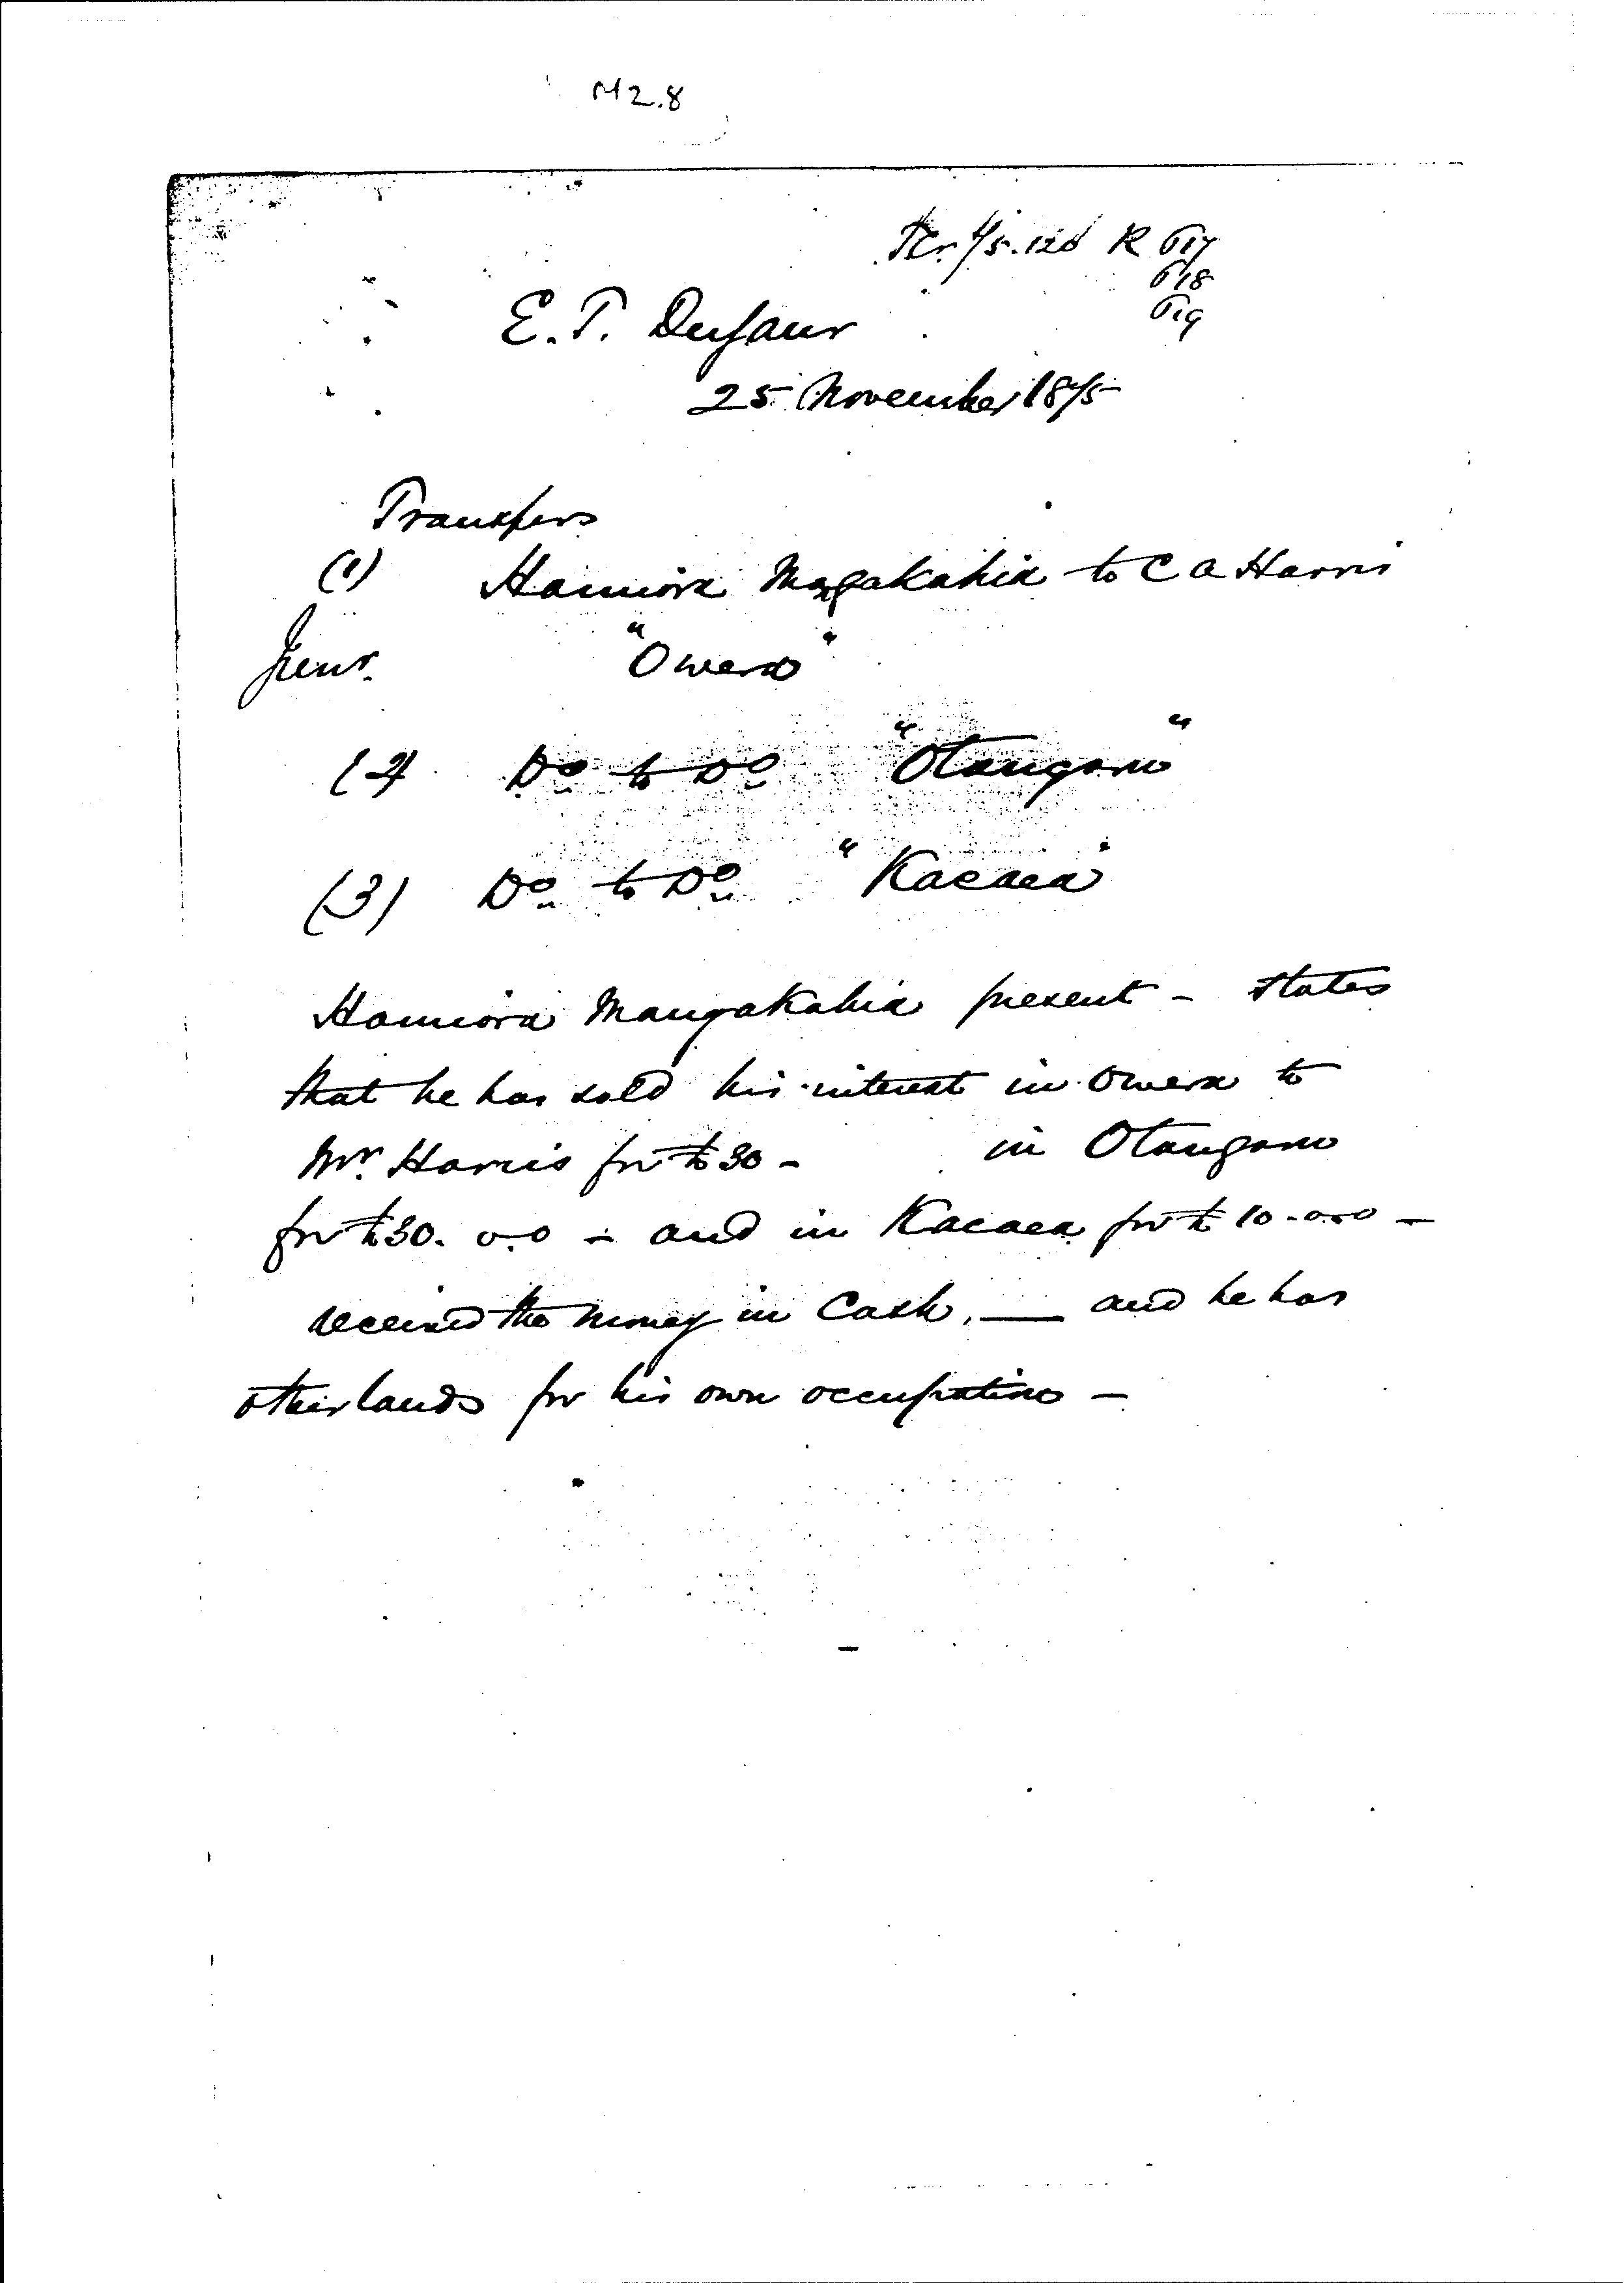 M2.8
Tr. 75.126 R 617
618
619
E. T. Dufaur
25 November 1875
Transfers
(1) Hamiora Mangakahia to C A Harris
Junr. "Owera"
(2) Do to Do "Otangaru"
(3) Do to Do "Kaeaea"
Hamiora Mangakahia present - states
that he has sold his interest in Owera to
Mr. Harris for £30 - in Otangaru
for £30. 0.0 - and in Kaeaea for £10-0.0 -
received the money in Cash. — and he has
other lands for his own occupation -